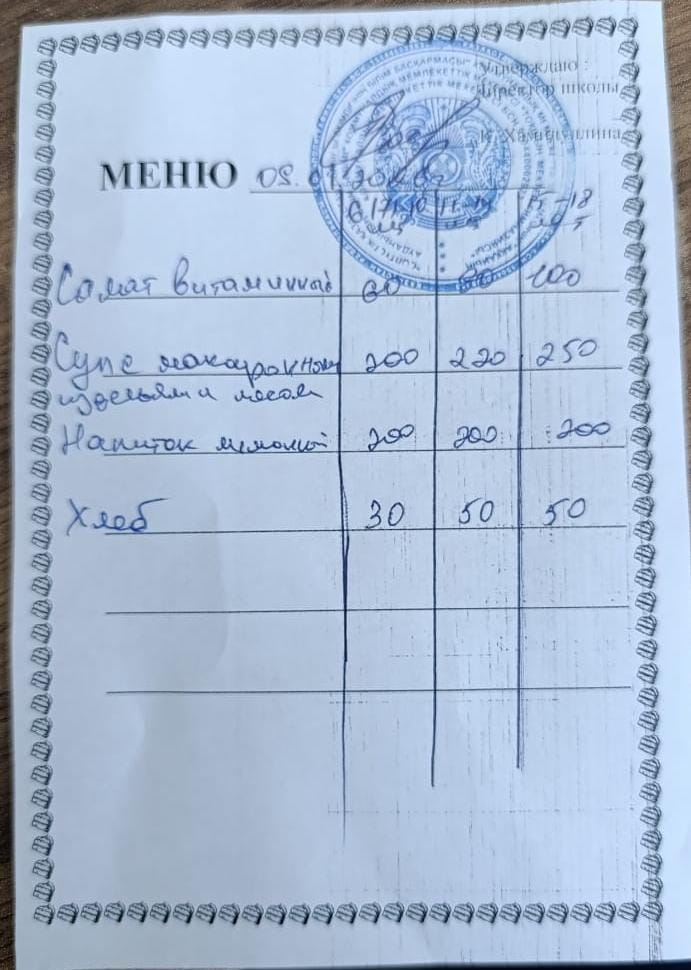 Утверждаю :
Директор школы
К. Хамидуллина
МЕНЮ
6 11-14 15-18
Салат витаминный 60 80 100
Суп с макаронным 200 220 250
изделиями мясом
Напиток лимонный 200 200 200
Хлеб 30 50 50